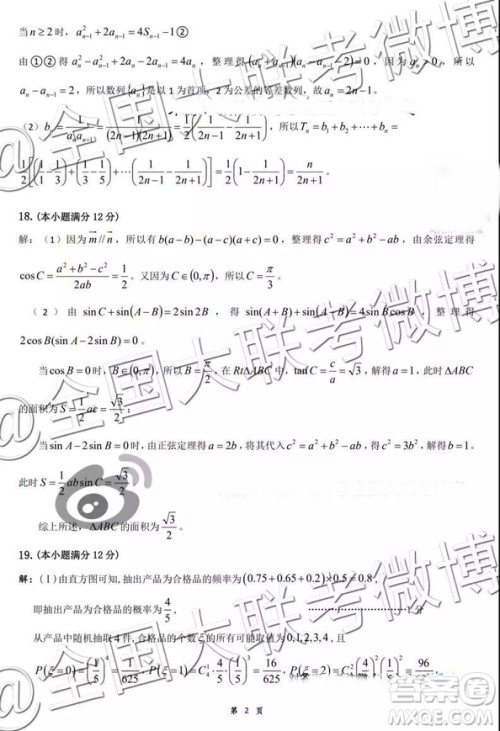 当 n ≥ 2 时, a²ₙ₋₁ + 2aₙ₋₁ = 4Sₙ₋₁ - 1②
由①②得 a²ₙ - a²ₙ₋₁ + 2aₙ - 2aₙ₋₁ = 4aₙ, 整理得 (aₙ + aₙ₋₁)(aₙ - aₙ₋₁ - 2) = 0, 因为 aₙ > 0, 所以
aₙ - aₙ₋₁ = 2, 所以数列{aₙ}是以 1 为首项, 2 为公差的等差数列, 故 aₙ = 2n - 1。
所以 Tₙ = b₁ + b₂ + ⋯ + bₙ =
1/2[(1/1 - 1/3) + (1/3 - 1/5) + ⋯ + (1/(2n-1) - 1/(2n+1))] = 1/2(1 - 1/(2n+1)) = n/(2n+1)
18. (本小题满分 12 分)
解: (1) 因为 m⃗ // n⃗, 所以有 b(a - b) - (a - c)(a + c) = 0, 整理得 c² = a² + b² - ab, 由余弦定理得
cos C = (a² + b² - c²)/2ab = 1/2。又因为 C ∈ (0, π), 所以 C = π/3。
(2) 由 sin C + sin(A - B) = 2 sin 2B, 得 sin(A + B) + sin(A - B) = 4 sin B cos B, 整理得
2 cos B(sin A - 2 sin B) = 0。
当 cos B = 0 时, B ∈ (0, π), 所以 B = π/2, 在 Rt△ABC 中, tan C = c/a = √3, 解得 a = 1, 此时 △ABC
的面积为 S = 1/2 ac = √3/2;
当 sin A - 2 sin B = 0 时, 由正弦定理得 a = 2b, 将其代入 c² = a² + b² - ab, 得 c² = 3b², 解得 b = 1。
此时 S = 1/2 ab sin C = √3/2。
综上所述, △ABC 的面积为 √3/2。
19. (本小题满分 12 分)
解: (1) 由直方图可知, 抽出产品为合格品的频率为 (0.75 + 0.65 + 0.2) × 0.5 = 0.8,
即抽出产品为合格品的概率为 4/5, 1 分
从产品中随机抽取 4 件, 合格品的个数 ξ 的所有可能取值为 0, 1, 2, 3, 4, 且
P(ξ = 0) = (1/5)⁴ = 1/625, P(ξ = 1) = C¹₄ · 4/5 · (1/5)³ = 16/625, P(ξ = 2) = C²₄(4/5)²(1/5)² = 96/625,
第 2 页
@全国大联考微博
答案圈
MXQE.COM